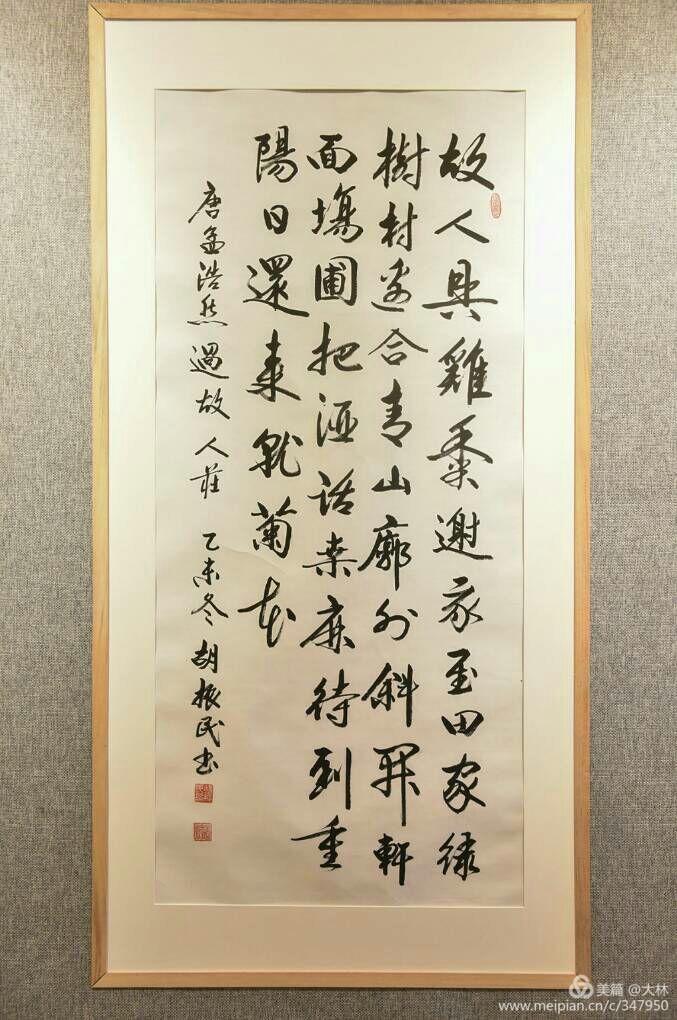 故人具雞黍邀我至田家綠
樹村邊合青山廓外斜開軒
面場圃把酒話桑麻待到重
陽日還來就菊花
唐孟浩然過故人莊 乙未冬 胡振民书
美篇 @大林
www.meipian.cn/c/347950